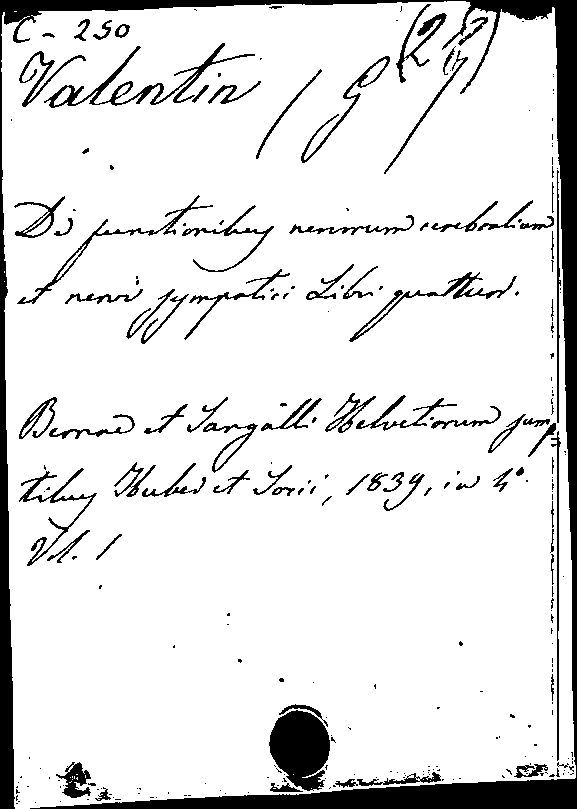 C - 250
Valentin / G /
De functionibus nervorum cerebralium
et nervi sympatici Libri quattuor.
Bernae et Sangalli Helvetiorum sump-
tibus Huber et Socii, 1839, in 4°.
Vol. 1